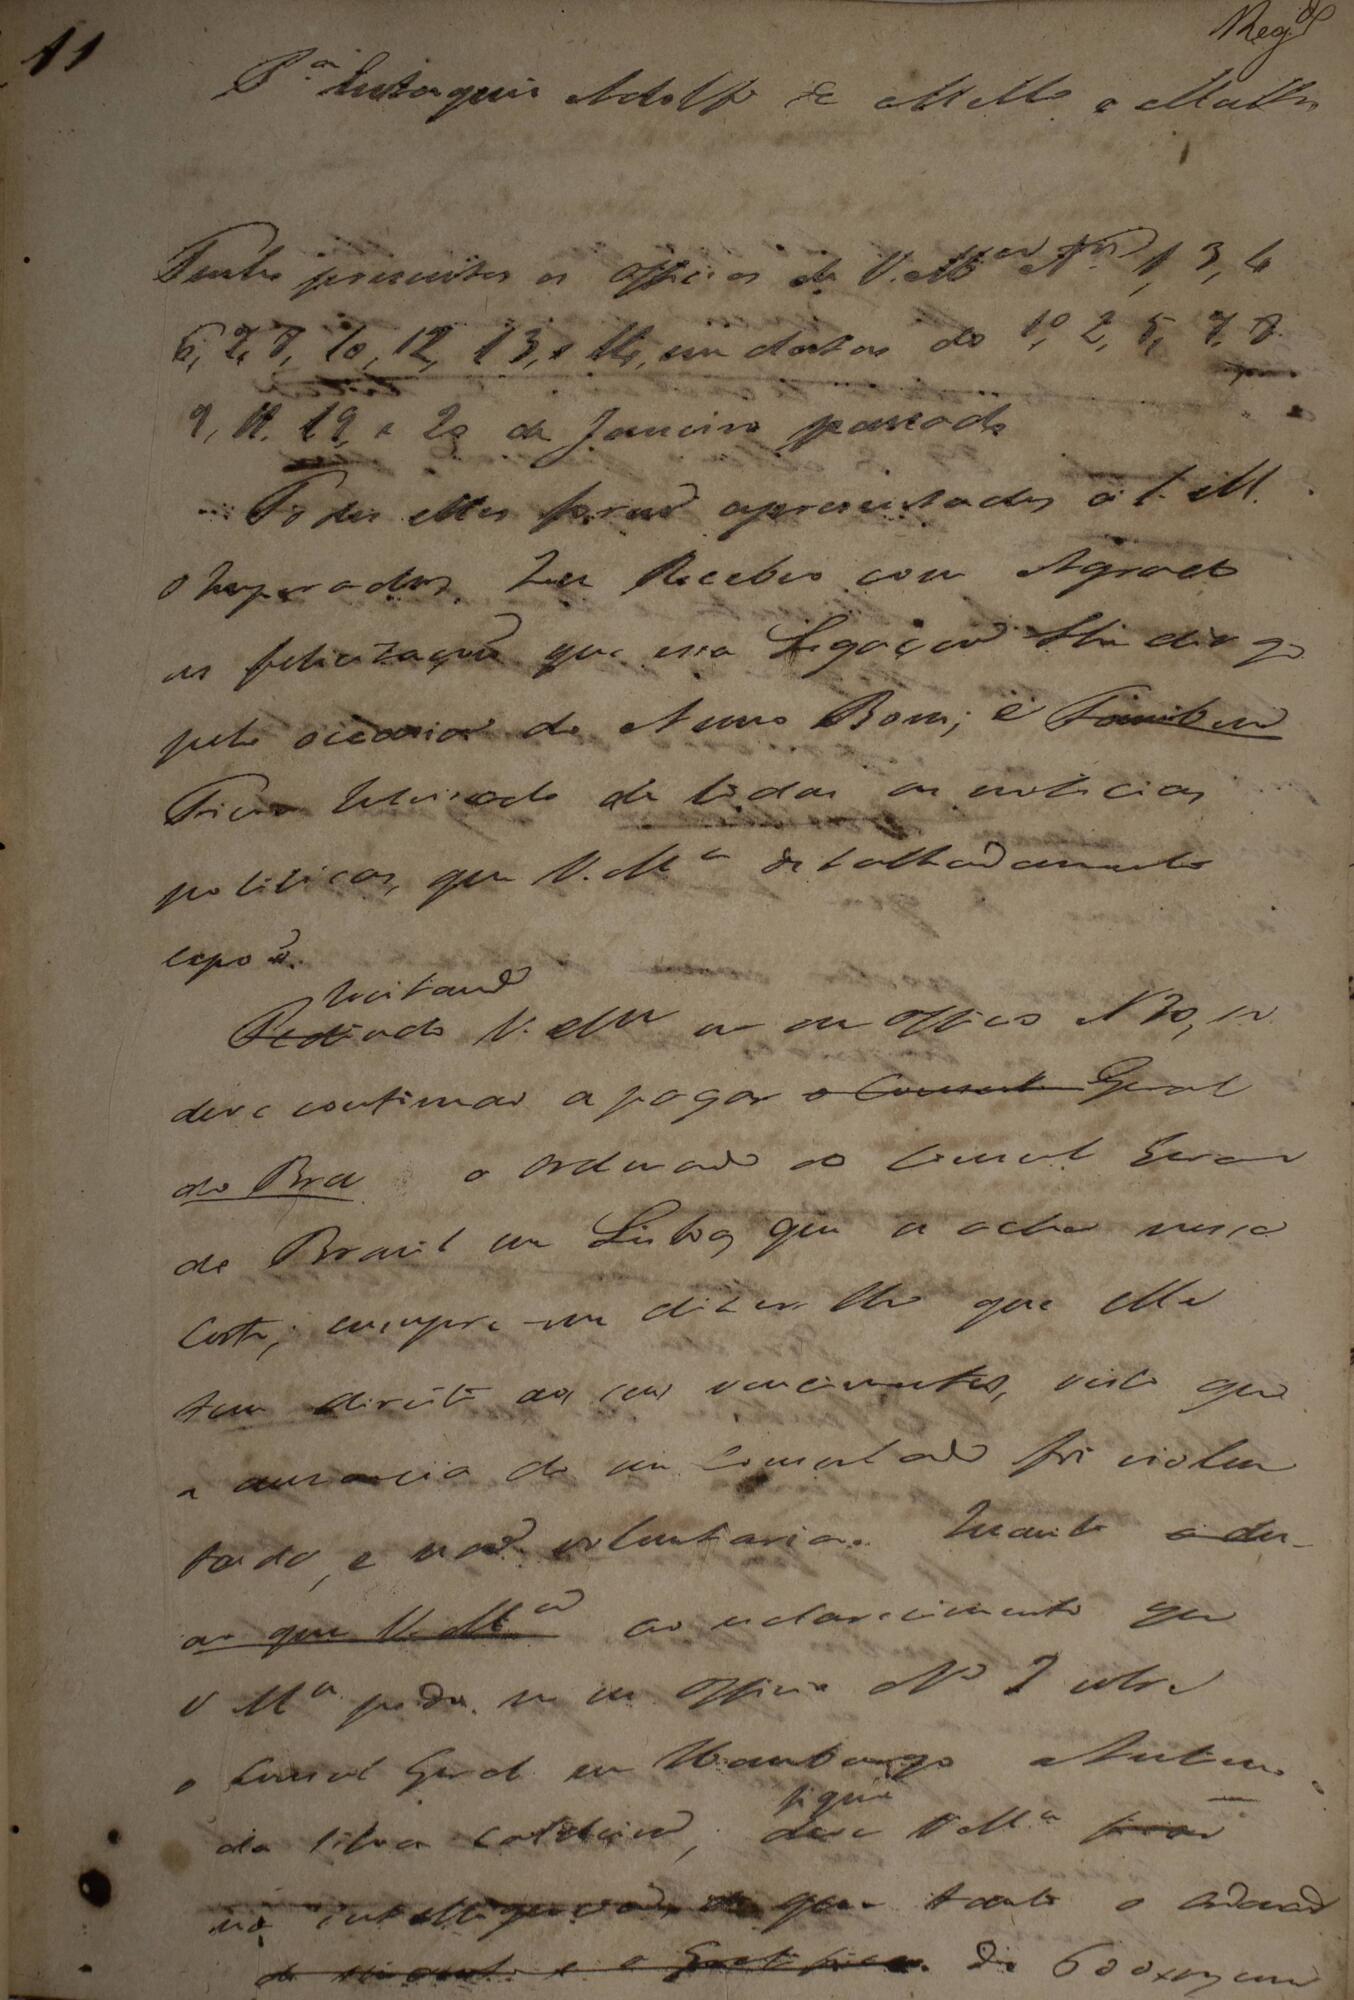 11
Reg.do
P.a Eustaquio Adolfo de Mello e Mattos
Tenho presentes os Officios de V. M.ce N.os 1, 3, 4
6, 7, 8, 10, 12, 13, e 14, em datas do 1º, 2, 5, 7, 8
9, 11, 19, e 20 de Janeiro passado
Todos elles forão apresentados a S. M.
o Imperador, Que Recebeo com Agrado
as felicitaçoens que essa Legação Lhe dirige
pela occasião do Anno Bom; e tambem
Fico inteirado de todas as noticias
politicas, que V. M.ce detalhadamente
expoẽ.
hesitando
Pedindo V. M.ce em seu officio N 10, se
deve continuar a pagar o Consul Geral
do Bra o ordenado ao Consul Geral
do Brasil em Lisboa, que se acha nessa
Corte; cumpre-me dizer-lhe que elle
tem direito aos seus vencimentos, visto que
a ausencia do seu Consulado foi violen
tada, e não voluntaria. Quanto
ao que V. M.ce ao esclarecimento que
V M.ce pede em seu officio Nº 7 sobre
o Consul Geral em Hamburgo Antonio
da Silva Caldeira,
fique
deve V M.ce ficar
na intelligencia de que tanto o ordenado
de 600